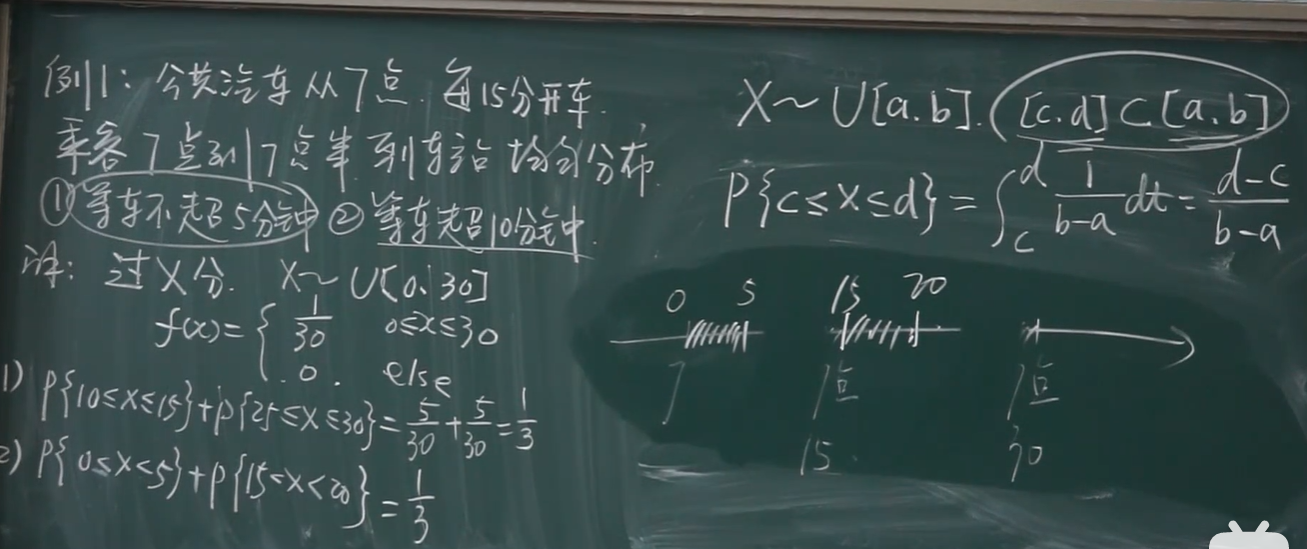 例1: 公共汽车从7点. 每15分开车.
乘客7点到7点半 到车站 均匀分布.
①等车不超5分钟 ②等车超10分钟.
解: 过X分. X~U[0,30]
f(x)={ 1/30 0≤x≤30
0. else
1) P{10≤X≤15}+P{25≤X≤30}=5/30+5/30=1/3
2) P{0≤X<5}+P{15<X<20}=1/3
X~U[a.b]. [c.d]⊂[a.b]
P{c≤X≤d}=∫_c^d 1/(b-a) dt=(d-c)/(b-a)
0 5 15 20
7 7点 7点
15. 30